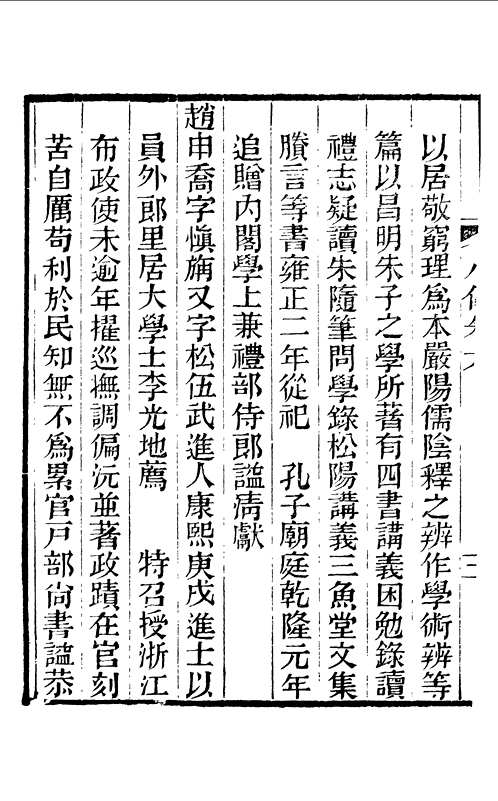 以居敬窮理爲本嚴陽儒陰釋之辨作學術辨等
篇以昌明朱子之學所著有四書講義困勉錄讀
禮志疑讀朱隨筆問學錄松陽講義三魚堂文集
賸言等書雍正二年從祀　孔子廟庭乾隆元年
追贈內閣學士兼禮部侍郎謚清獻
趙申喬字愼旃又字松伍武進人康熙庚戌進士以
員外郎里居大學士李光地薦　特召授浙江
布政使未逾年擢巡撫調偏沅並著政蹟在官刻
苦自厲苟利於民知無不爲累官戶部尙書謚恭